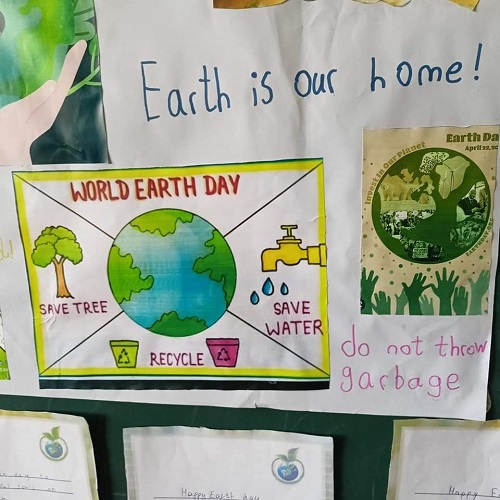 Earth is our home!
Earth Da
April 22, 20
Invest in Our Planet
WORLD EARTH DAY
SAVE TREE
SAVE
WATER
RECYCLE
do not throw
garbage
Happy Earth day
Happy E